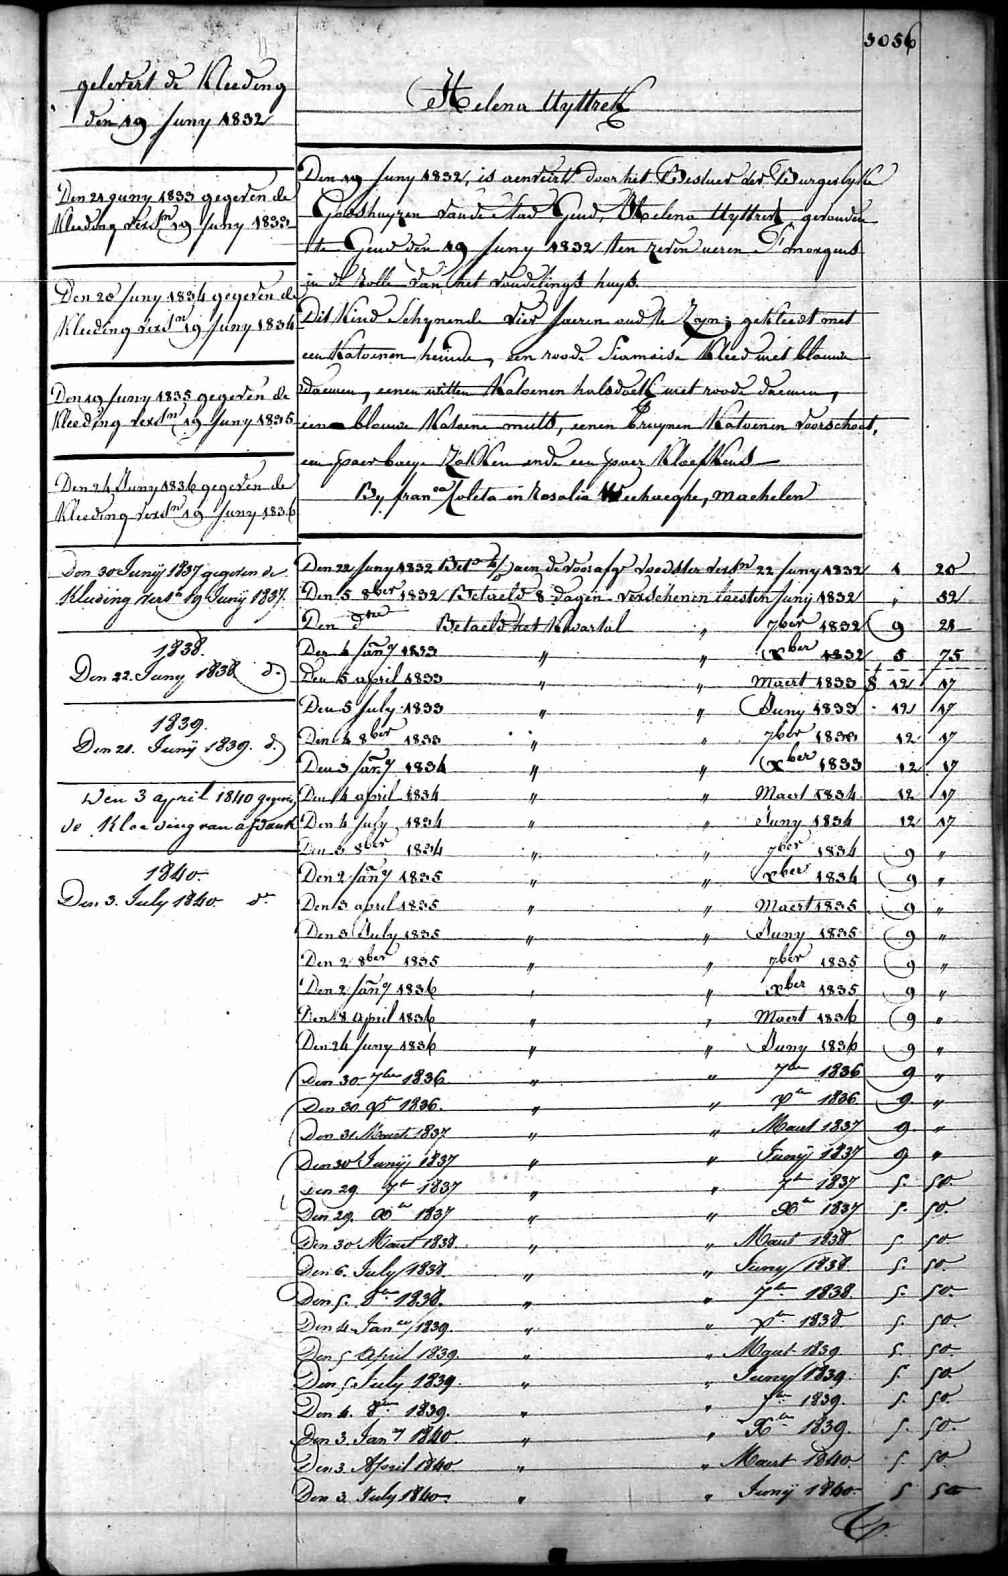 3056
gelevert de Kleeding
den 19 Juny 1832
Den 21 Juny 1833 gegeven de
Kleeding versn 19 Juny 1833
Den 28 Juny 1834 gegeven de
Kleeding versn 19 Juny 1834
Den 19 Juny 1835 gegeven de
Kleeding versn 19 Juny 1835
Den 24 Juny 1836 gegeven de
Kleeding versn 19 Juny 1836
Den 30 Junij 1837 gegeven de
Kleeding versn 19 Junij 1837.
1838.
Den 22. Juny 1838 d.
1839.
Den 21. Junij 1839. d.
Den 3 april 1840 gegeven
de Kleeding van afdank
1840.
Den 3. July 1840. do.
Helena Uyttrek
Den 19 Juny 1832, is aenveirt door het Bestuer der Burgerlyke
Godshuyzen van de Stad Gend, Helena Uyttrek, gevonden
te Gend den 19 Juny 1832 ten zeven ueren S'morgens
in de Rolle van het vondelings huys.
Dit Kind Schynende vier Jaeren oud te Zyn; gekleedt met
een Katoenen hemde, een roode Siamoise Kleed met blauwe
, eenen witten Katoenen halsdoek met roode ,
eene blauwe Katoene muts, eenen Bruynen Katoenen voorschoot,
een paer Zokken ende een paer Kloefkens
By franca Coleta in Rosalia , Machelen
Den 22 Juny 1832 aen de voedster versn 22 Juny 1832 1 20
Den 5 8ber 1832 Betaeld 8 dagen verschenen laesten Juny 1832 " 82
Den dito Betaeld het Kwartal " 7ber 1832 9 28
Den 4 Jany 1833 " " Xber 1832 5 75
Den 5 april 1833 " " Maert 1833 12 17
Den 5 July 1833 " " Juny 1833 12 17
Den 4 8ber 1833 " " 7ber 1833 12 17
Den 3 Jany 1834 " " Xber 1833 12 17
Den 4 april 1834 " " Maert 1834 12 17
Den 4 July 1834 " " Juny 1834 12 17
Den 3 8ber 1834 " " 7ber 1834 9 "
Den 2 Jany 1835 " " Xber 1834 9 "
Den 3 april 1835 " " Maert 1835 9 "
Den 3 July 1835 " " Juny 1835 9 "
Den 2 8ber 1835 " " 7ber 1835 9 "
Den 2 Jany 1836 " " Xber 1835 9 "
Den 8 april 1836 " " Maert 1836 9 "
Den 24 Juny 1836 " " Juny 1836 9 "
Den 30 7ber 1836 " " 7ber 1836 9 "
Den 30 Xber 1836. " " Xber 1836 9 "
Den 31 Maert 1837 " " Maert 1837 9 "
Den 30 Junij 1837 " " Junij 1837 9 "
Den 29 7br 1837 " " 7br 1837 5. 50.
Den 29. Xbr 1837 " " Xbr 1837 5. 50.
Den 30 Maert 1838. " " Maert 1838 5. 50.
Den 6. July 1838. " " Juny 1838. 5. 50.
Den 5. 8br 1838. " " 7br 1838. 5. 50.
Den 4 Janer 1839. " " Xbr 1838. 5. 50.
Den 5 April 1839. " " Maert 1839. 5. 50.
Den 5 July 1839. " " Juny 1839. 5. 50.
Den 4. 8br 1839. " " 7br 1839. 5. 50.
Den 3. Jany 1840. " " Xbr 1839. 5. 50.
Den 3. April 1840 " " Maert 1840 5. 50.
Den 3. July 1840. " " Junij 1840. 5 50